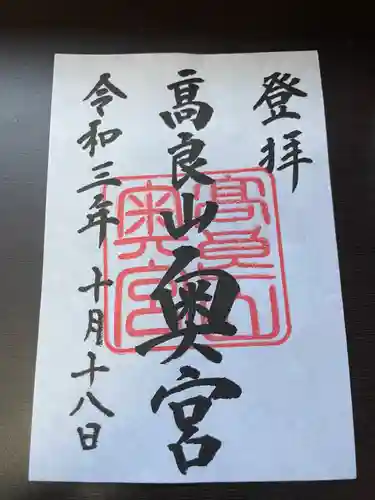 登拝
高良山奥宮
令和三年十月十八日
高良山
奥宮